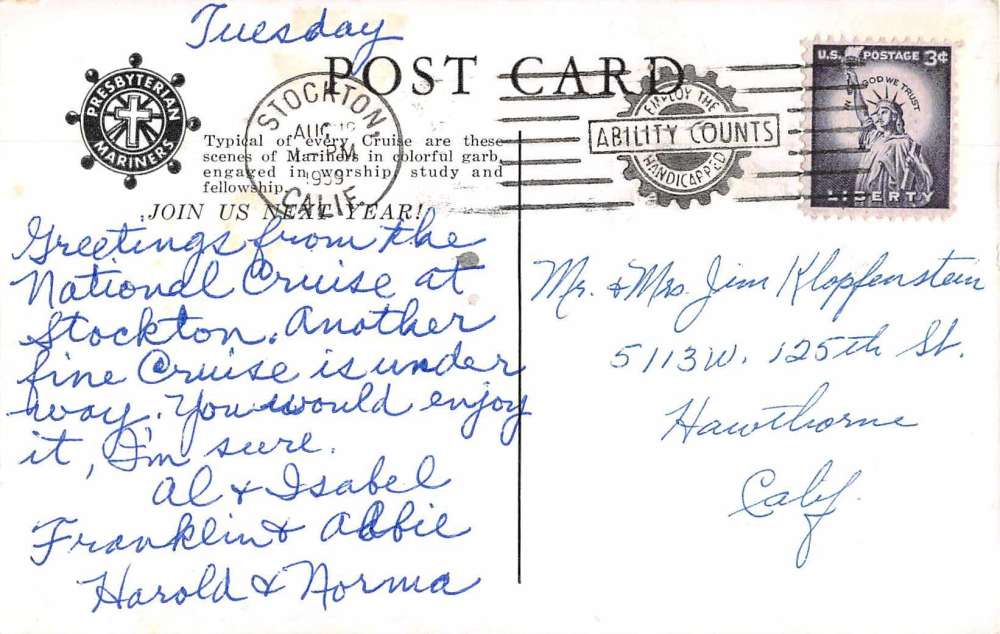 Tuesday
POST CARD
PRESBYTERIAN
MARINERS
Typical of every Cruise are these
scenes of Mariners in colorful garb,
engaged in worship, study and
fellowship.
JOIN US NEXT YEAR!
STOCKTON,
AUG
1959
CALIF.
EMPLOY THE
ABILITY COUNTS
HANDICAPPED
U.S. POSTAGE 3¢
IN GOD WE TRUST
LIBERTY
Greetings from the
National Cruise at
Stockton. Another
fine Cruise is under
way. You would enjoy
it, I'm sure.
Al & Isabel
Franklin & Abbie
Harold & Norma
Mr. & Mrs. Jim Klopfenstein
5113 W. 125th St.
Hawthorne
Calif.